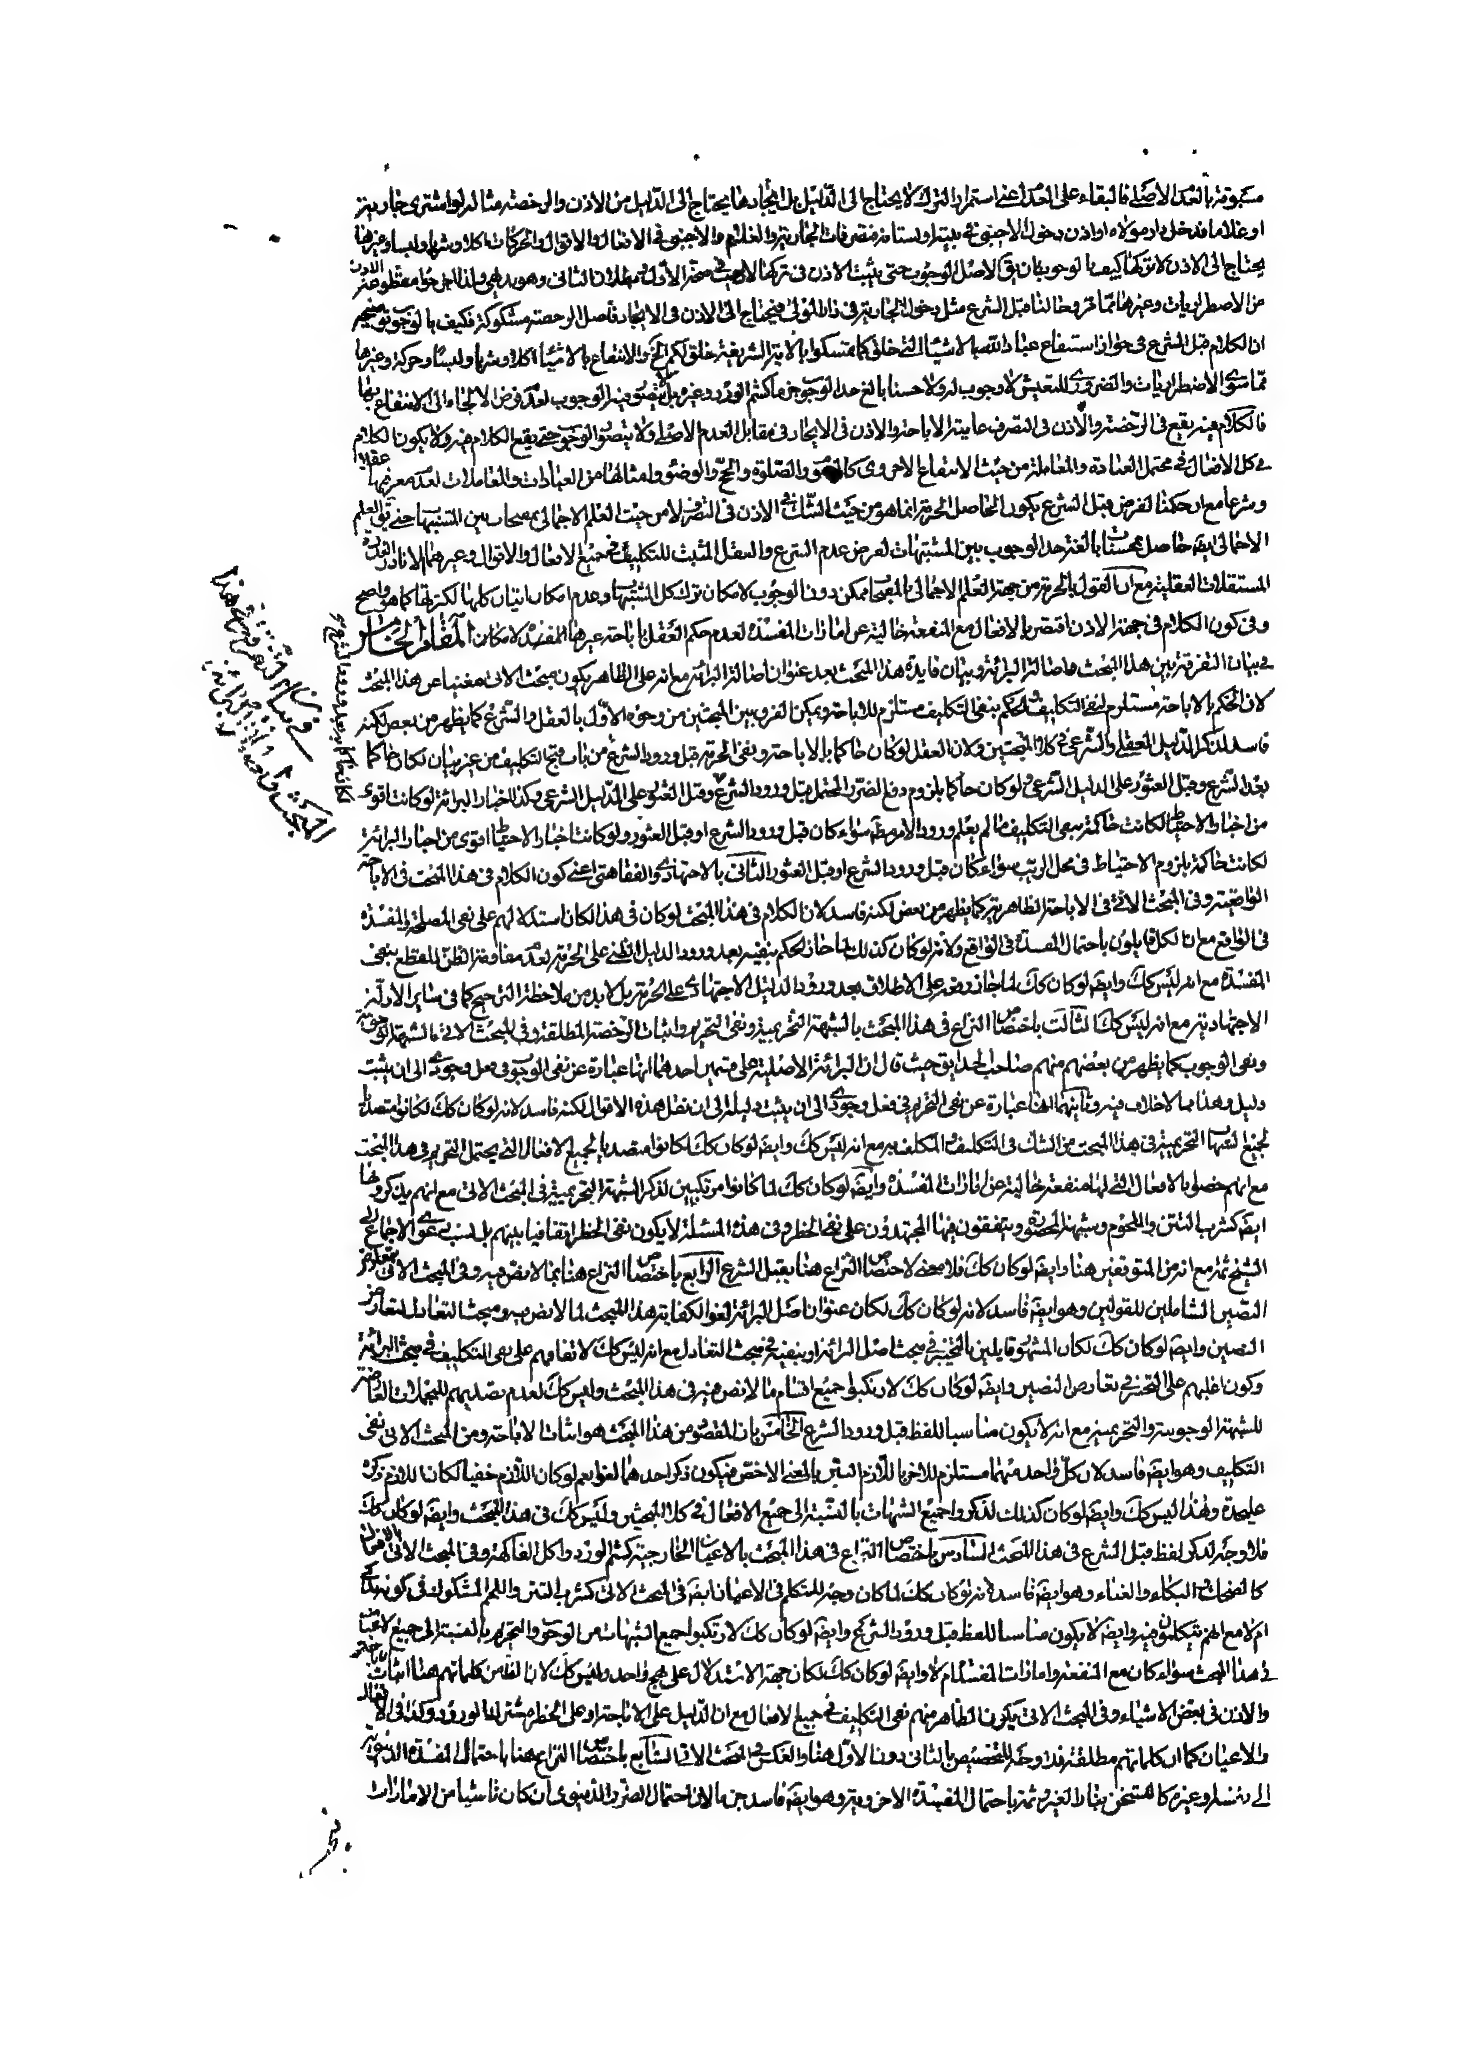 مسبوقة بالعدل الاصلى فالبقاء على العدل اعنى استمرار الترك لا يحتاج الى الدليل بل ايجادها يحتاج الى الدليل من الاذن والرخصة مثاله لو اشترى جارية
او غلاما فدخل دار مولاه او اذن دخول الاجنبى فى بيته او بستانه فتصرفات الجارية والغلام والاجنبى فى الافعال والاقوال والحركات اكلا وشربا ولبسا وغيرها
يحتاج الى الاذن لا تركها كيف بالوجوب بان يق الاصل الوجوب حتى يثبت الاذن فى تركها
من الاضطراريات وغيرها مما مر وحالنا قبل الشرع مثل دخول الجارية فى دار المولى فيحتاج الى الاذن فى الايجاد فاصل الرخصة مشكوكة فكيف بالوجوب
ان الكلام قبل الشرع فى جواز استنفاع عباد الله بالاشياء التى خلق كما تمسكوا بالاية الشريفة خلق لكم الخ والانتفاع بالاشياء اكلا وشربا ولبسا وحركة وغيرها
مما سوى الاضطراريات والضرورى للتعيش لا وجوب له ولا حسنا بالغ حد الوجوب من ما كشم الورد وغيره بل لا يتصور فيه الوجوب لعدم فرض الالجاء الى الانتفاع بها
فالكلام فيه يقع فى الرخصة والاذن فى التصرف غايته الاباحة والاذن فى الايجاد فى مقابل العدم الاصلى ولا يتصور الوجوب حتى يقع الكلام فيه ولا يكون الكلام
فى كل الافعال فى محتمل العبادة والمعاملة من حيث الانتفاع الاخروى كالصوم والصلوة والحج والوضوء وامثالها من العبادات والمعاملات لعدم معرفتها عقلا
وشرعا مع ان حكمنا لفرض قبل الشرع يكون الحاصل الحرمة انما هو من حيث الشك فى الاذن فى التصرف لا من حيث العلم الاجمالى بمصحاب بين المشتبهات حتى يق العلم
الاجمالى ايضا حاصل بمحسنات بالغة حد الوجوب بين المشتبهات لفرض عدم الشرع والعقل المثبت للتكليف فى جميع الافعال والاقوال وغيرهما الا نادرا
المستقلات العقلية مع ان القول بالحرمة من جهة العلم الاجمالى بالمقبحات ممكن دون الوجوب لامكان ترك كل المشتبهات وعدم امكان اتيان كلها لكثرتها كما هو واضح
وفى كون الكلام فى جهة الاذن اقتصر بالافعال مع المنفعة خالية عن امارات المفسدة لعدم حكم العقل باباحة غيرها المفسدة لامكان المقام الخامس
فى بيان التفرقة بين هذا المبحث واصالة البرائة وبيان فايدة هذا المبحث بعد عنوان اصالة البرائة مع انه على الظاهر يكون مبحث الاتى مغنيا عن هذا المبحث
لان الحكم بالاباحة مستلزم لنفى التكليف والحكم بنفى التكليف مستلزم للاباحة ويمكن الفرق بين المبحثين من وجوه الاول بالعقل والشرع كما يظهر من بعض لكنه
فاسد لذكر الدليل العقلى والشرعى فى كلا المبحثين ولان العقل لو كان حاكما بالاباحة ونفى الحرمة قبل ورود الشرع من باب قبح التكليف من غير بيان لكان حاكما
بعد الشرع وقبل العثور على الدليل الشرعى ولو كان حاكما بلزوم دفع الضرر المحتمل قبل ورود الشرع وقبل العثور على الدليل الشرعى وكذا اخبار البرائة لو كانت اقوى
من اخبار الاحتياط لكانت حاكمة بنفى التكليف ما لم يعلم ورود الامر مطلقا سواء كان قبل ورود الشرع او قبل العثور ولو كانت اخبار الاحتياط اقوى من اخبار البرائة
لكانت حاكمة بلزوم الاحتياط فى محل الريب سواء كان قبل ورود الشرع او قبل العثور الثانى بالاجتهادى والفقاهتى اعنى كون الكلام فى هذا المبحث فى الاباحة
الواقعية وفى المبحث الاتى فى الاباحة الظاهرية كما يظهر من بعض لكنه فاسد لان الكلام فى هذا المبحث لو كان فى هذا لكان استدلالهم على نفى المصلحة والمفسدة
فى الواقع مع ان الكل قايلون باحتمال المفسدة فى الواقع ولانه لو كان كذلك لما جاز الحكم بنفيه بعد ورود الدليل الظنى على الحرمة لعدم مقاومة الظن للقطع بنفى
المفسدة مع انه ليس كك وايضا لو كان كك لما جاز رفعه على الاطلاق بعد ورود الدليل الاجتهادى على الحرمة بل لابد من ملاحظة الترجيح كما فى ساير الادلة
الاجتهادية مع انه ليس كك الثالث باختصاص النزاع فى هذا المبحث بالشبهة التحريمية ونفى التحريم واثبات الرخصة المطلقة وفى المبحث الاتى بالشبهة الوجوبية
ونفى الوجوب كما يظهر من بعضهم منهم صاحب الحدايق حيث قال ان البرائة الاصلية على قسمين احدهما انها عبارة عن نفى الوجوب فى فعل وجودى الى ان يثبت
دليل وهذا مما لا خلاف فيه وثانيهما انها عبارة عن نفى التحريم فى فعل وجودى الى ان يثبت دليله الى ان نقل هذه الاقوال لكنه فاسد لانه لو كان كك لكانوا متصديا
لجميع الشبهات التحريمية فى هذا المبحث من الشك فى التكليف والمكلف به مع انه ليس كك وايضا لو كان كك لكانوا متصديا لجميع الافعال التى يحتمل التحريم فى هذا المبحث
مع انهم خصوا بالافعال التى لها منفعة خالية عن امارات المفسدة وايضا لو كان كك لما كانوا مرتكبين لذكر الشبهة التحريمية فى المبحث الاتى مع انهم يذكرونها
ايضا كشرب التتن واللحوم وشبهة المحصورة ويتفقون فيها المجتهدون على نفى الحظر وفى هذه المسئلة لا يكون نفى الحظر اتفاقيا بينهم بل نسب دعوى الاجماع الى
الشيخ ثمة مع انه من المتوقفين هنا وايضا لو كان كك فلا معنى لاختصاص النزاع هنا بقبل الشرع الرابع باختصاص النزاع هنا بما لا نص فيه وفى المبحث الاتى بتعارض
النصين الشاملين للقولين وهو ايضا فاسد لانه لو كان كك لكان عنوان اصل البرائة لغوا لكفاية هذا المبحث لما لا نص فيه ومبحث التعادل لتعارض
النصين وايضا لو كان كك لكان المشهور قايلين بالتخيير فى مبحث اصل البرائة او بنفيه فى مبحث التعادل مع انه ليس كك لاتفاقهم على نفى التكليف فى مبحث البرائة
وكون اغلبهم على التخيير فى تعارض النصين وايضا لو كان كك لارتكبوا جميع اقسام ما لا نص فيه فى هذا المبحث وليس كك لعدم تصديهم
للشبهة الوجوبية والتحريمية مع انه لا يكون مناسبا للفظ قبل ورود الشرع الخامس بان المقصود من هذا المبحث هو اثبات الاباحة ومن المبحث الاتى نفى
التكليف وهو ايضا فاسد لان كل واحد منهما مستلزم للاخر باللازم البين بالمعنى الاخص فيكون ذكر احدهما لغوا نعم لو كان اللازم خفيا لكان اللازم ذكره
عليحدة وهذا ليس كك وايضا لو كان كذلك لذكروا جميع الشبهات بالنسبة الى جميع الافعال فى كلا المبحثين وليس كك فى هذا المبحث وايضا لو كان كك
فلا وجه لذكر لفظ قبل الشرع فى هذا المبحث السادس باختصاص النزاع فى هذا المبحث بالاعيان الخارجية كشم الورد واكل الفاكهة وفى المبحث الاتى بالافعال
كالضحك والبكاء والغناء وهو ايضا فاسد لانه لو كان كك لما كان وجه للتكلم فى الاعيان ايضا فى المبحث الاتى كشرب التتن واللحم المشكوك فى كونه مذكى
ام لا مع انهم يتكلمون فيه وايضا لا يكون مناسبا للفظ قبل ورود الشرع وايضا لو كان كك لارتكبوا جميع الشبهات من الوجوب والتحريم بالنسبة الى جميع الاعيان
فى هذا المبحث سواء كان مع المنفعة وامارات المفسدة ام لا وايضا لو كان كك لكان جهة الاستدلال على نهج واحد وليس كك لان الظاهر من كلماتهم هنا اثبات الاباحة
والاذن فى بعض الاشياء وفى المبحث الاتى يكون الظاهر منهم نفى التكليف فى جميع الافعال مع ان الدليل على الاباحة او على الحظر مشترك الورود ولذا فى الافعال
والاعيان كما ان كلماتهم مطلقة فلا وجه للتخصيص بالثانى دون الاول هنا والعكس فى المبحث الاتى السابع باختصاص النزاع هنا باحتمال المفسدة الدنيوية
الى نفسه وغيره كالتسخن بنار الغير وثمة باحتمال المفسدة الاخروية وهو ايضا فاسد جزما لان احتمال الضرر الدنيوى ان كان ناشيا من الامارات